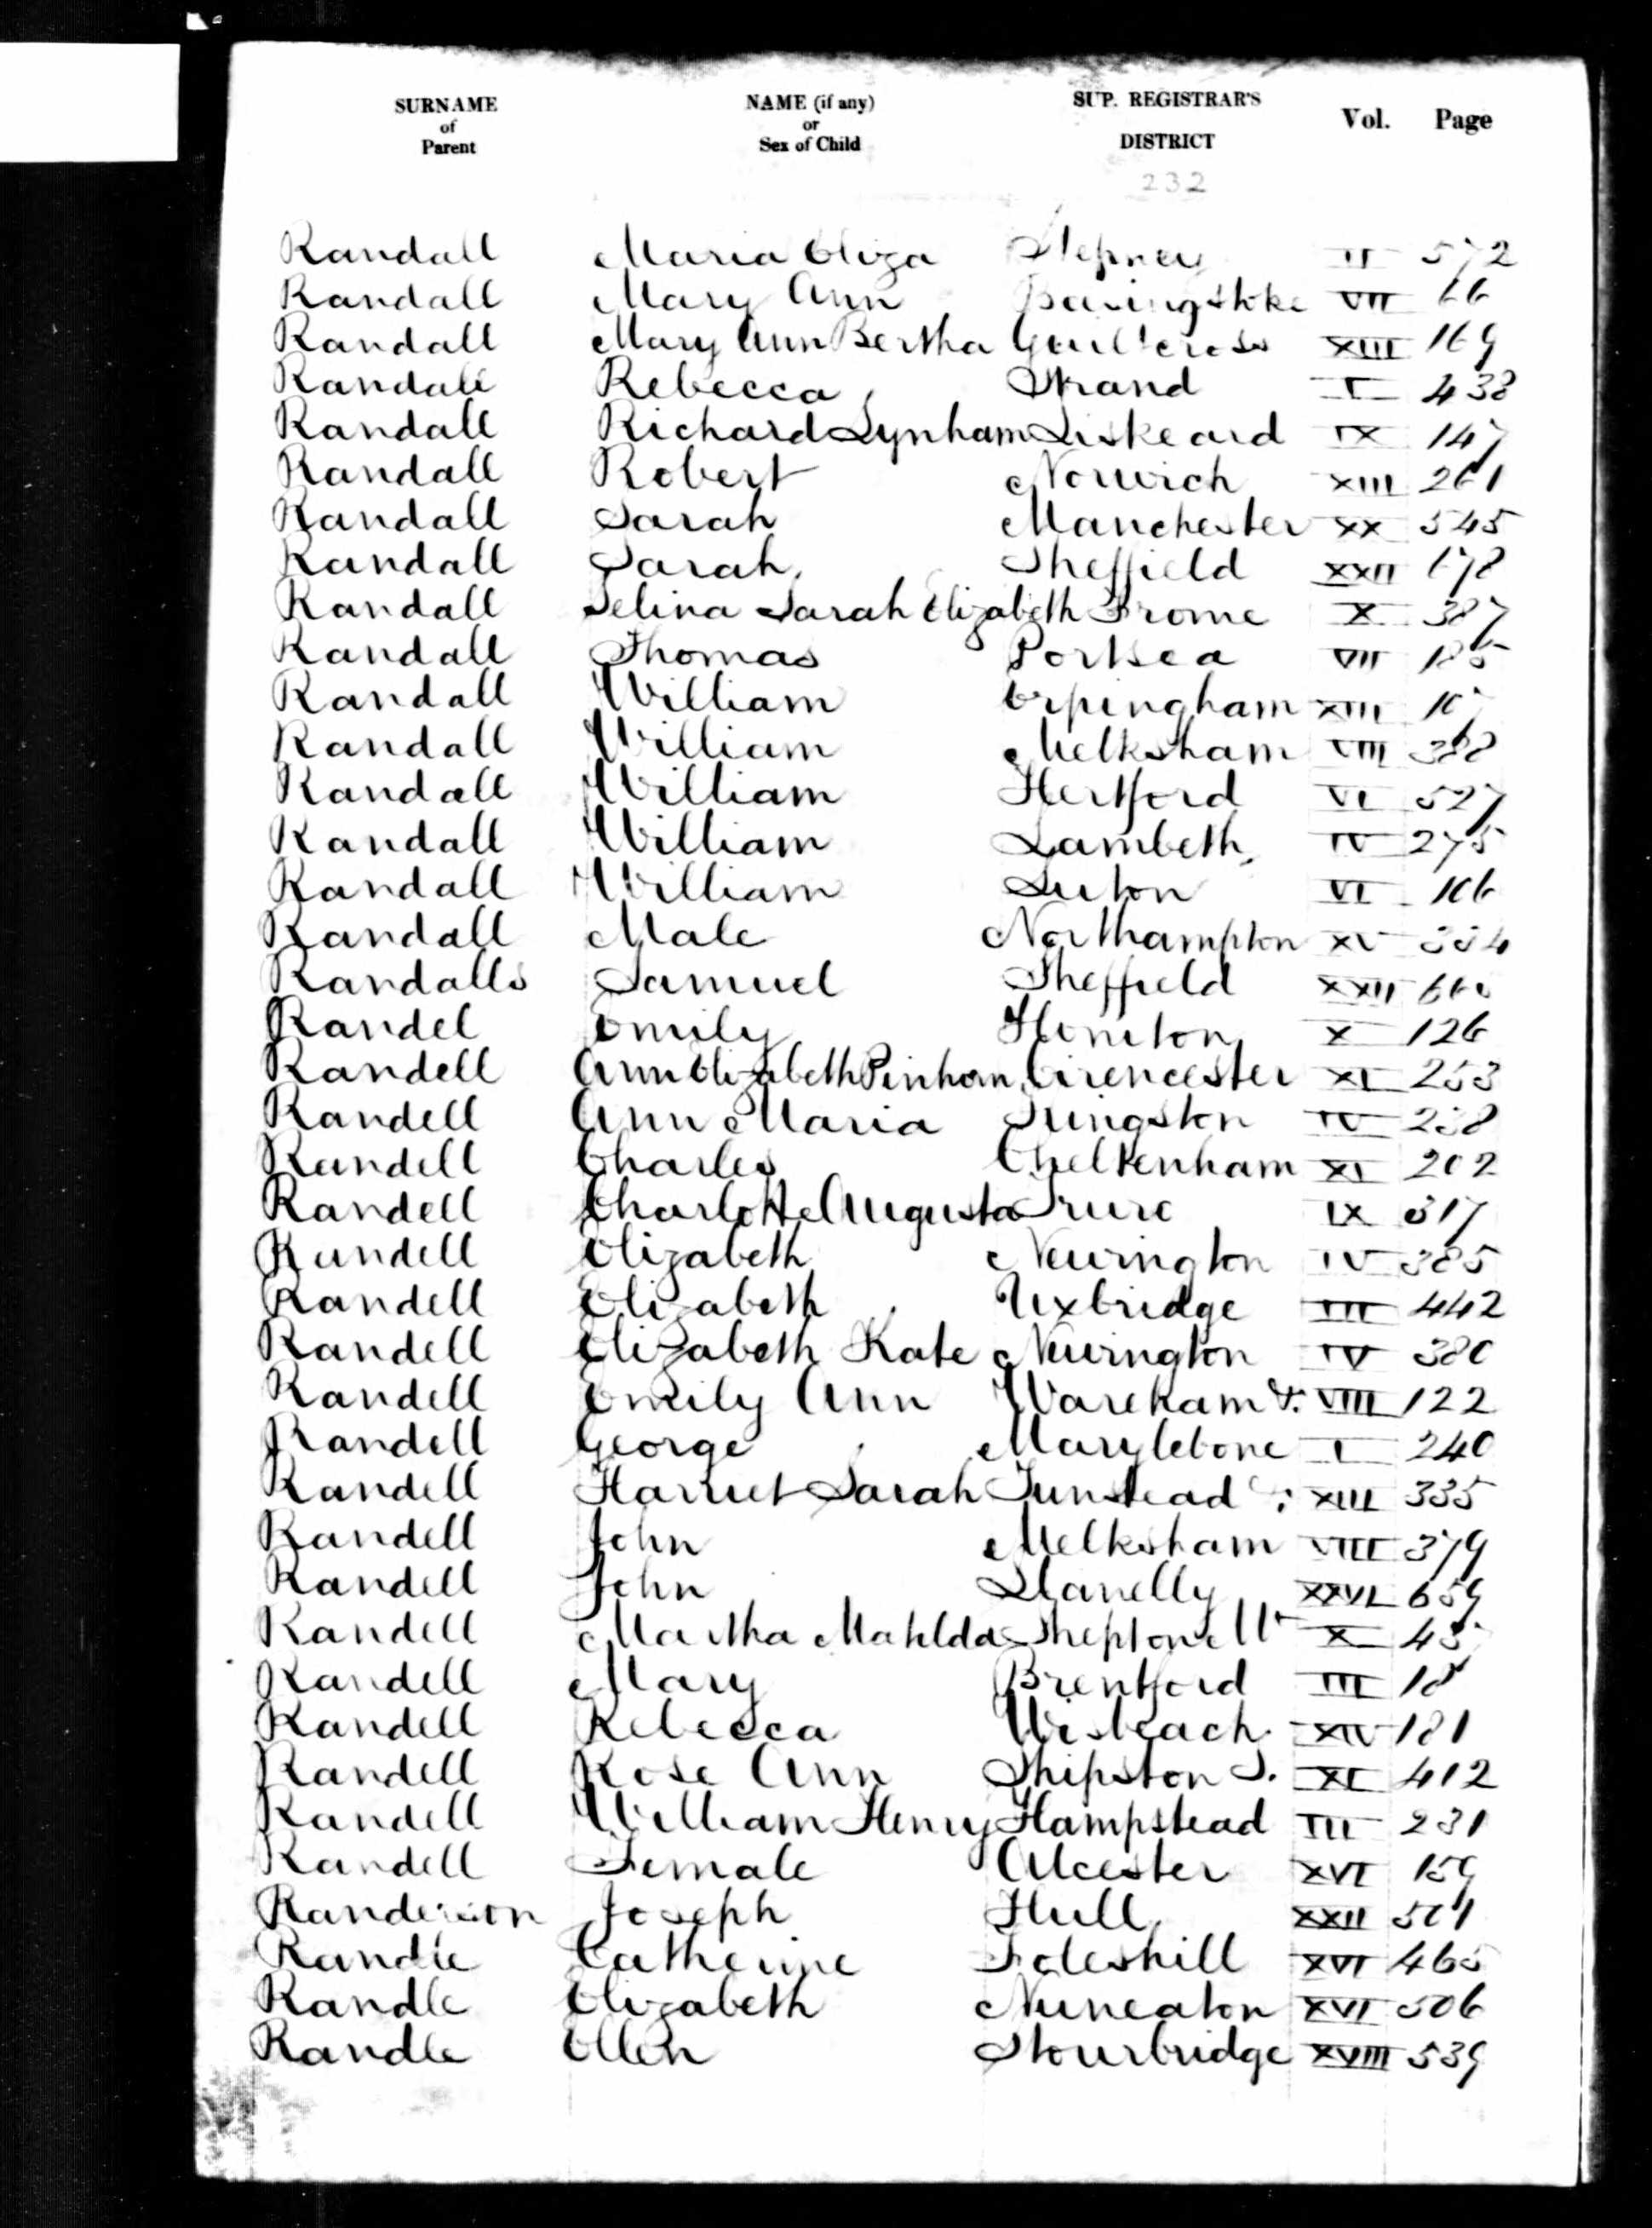 SURNAME of Parent NAME (if any) or Sex of Child SUP. REGISTRAR'S DISTRICT Vol. Page
232
Randall Maria Eliza Stepney II 572
Randall Mary Ann Basingstoke VII 66
Randall Mary Ann Bertha Guiltcross XIII 169
Randall Rebecca Strand I 438
Randall Richard Lynham Liskeard IX 147
Randall Robert Norwich XIII 261
Randall Sarah Manchester XX 545
Randall Sarah Sheffield XXII
Randall Selina Sarah Elizabeth Frome X 387
Randall Thomas Portsea VII 185
Randall William Erpingham XIII
Randall William Melksham VIII 388
Randall William Hertford VI 527
Randall William Lambeth IV 275
Randall William Luton VI
Randall Male Northampton XV 334
Randalls Samuel Sheffield XXII
Randel Emily Honiton X 126
Randell Ann Elizabeth Pinhorn Cirencester XI 253
Randell Ann Maria Kingston IV 238
Randell Charles Cheltenham XI 202
Randell Charlotte Augusta Truro IX 317
Randell Elizabeth Newington IV 385
Randell Elizabeth Uxbridge III 442
Randell Elizabeth Kate Newington IV 380
Randell Emily Ann Wareham &. VIII 122
Randell George Marylebone I 240
Randell Harriet Sarah Tunstead &. XIII 335
Randell John Melksham VIII 379
Randell John Llanelly XXVI 659
Randell Martha Matilda Shepton Mt X
Randell Mary Brentford III 18
Randell Rebecca Wisbeach XIV 181
Randell Rose Ann Shipston S. XI 412
Randell William Henry Hampstead III 231
Randell Female Alcester XVI 159
Randerson Joseph Hull XXII 501
Randle Catherine Foleshill XVI 465
Randle Elizabeth Nuneaton XVI 506
Randle Ellen Stourbridge XVIII 539